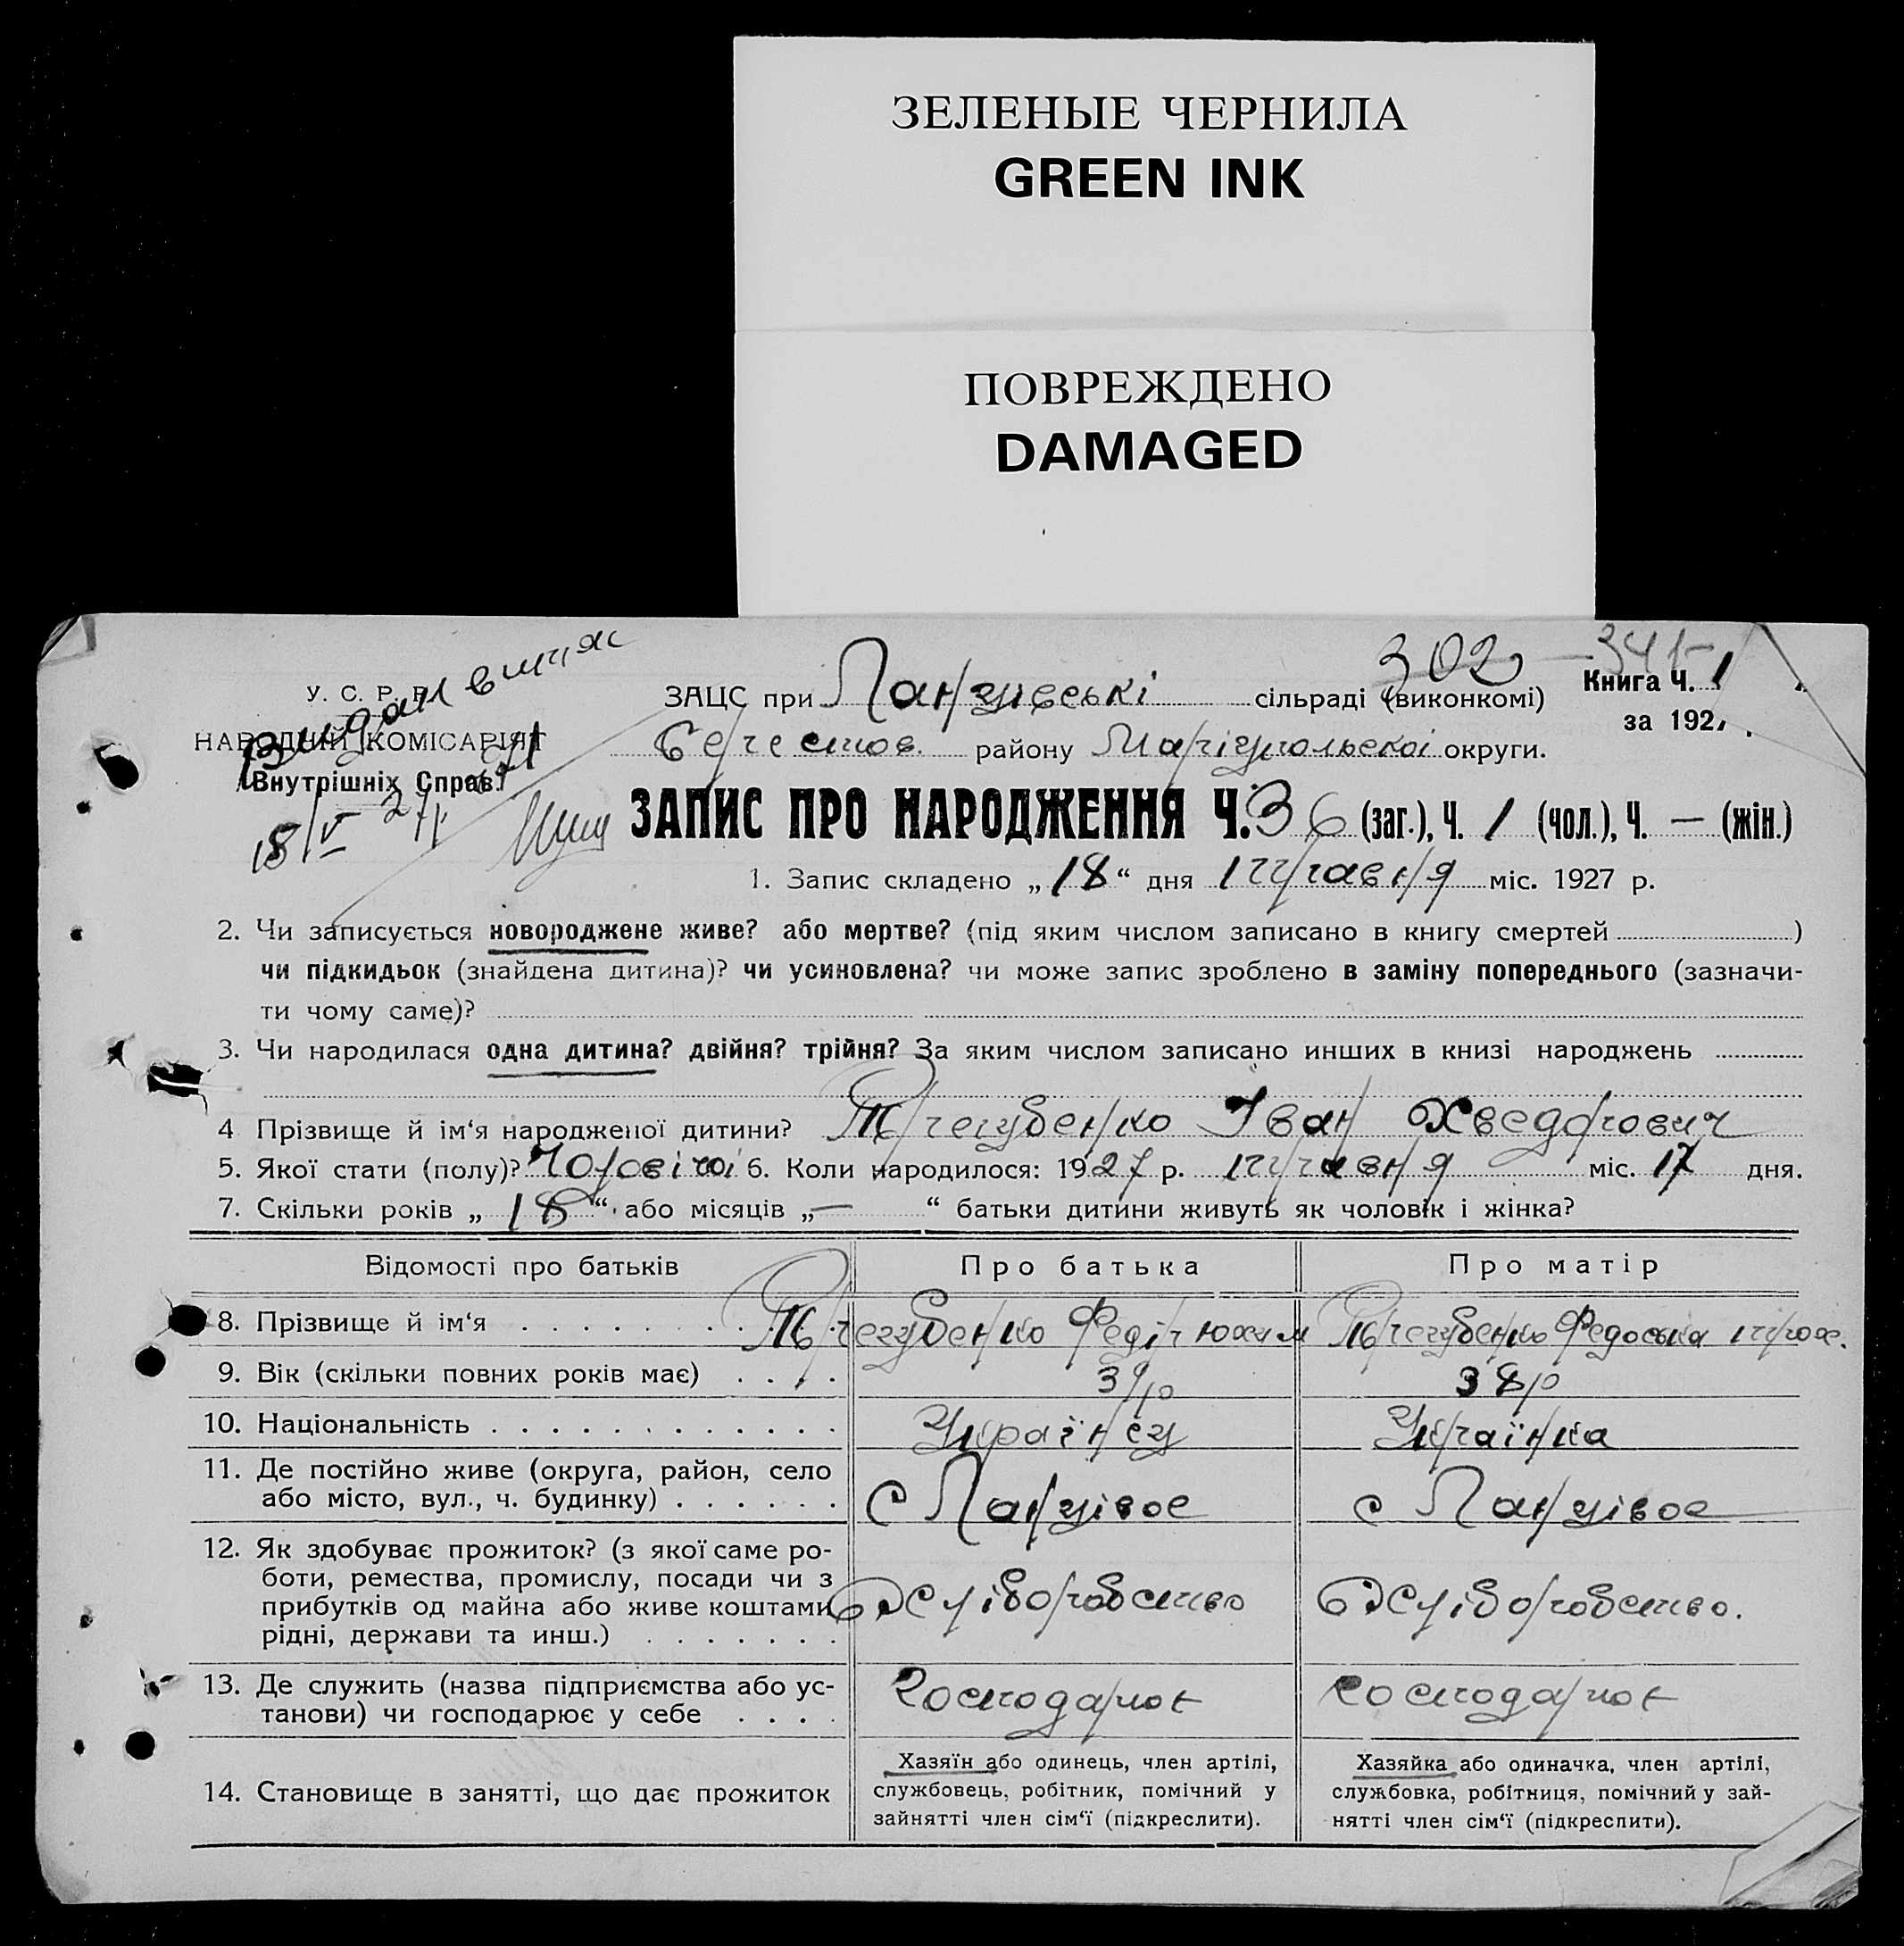 ЗЕЛЕНЫЕ ЧЕРНИЛА
GREEN INK
ПОВРЕЖДЕНО
DAMAGED
302 341
У. С. Р. Р.
НАРОДНИЙ КОМІСАРІЯТ
Внутрішніх Справ.
18/V 27
ЗАЦС при сільраді (виконкомі)
Книга Ч. 1
за 1927
району Маріупольської округи.
ЗАПИС ПРО НАРОДЖЕННЯ Ч. 36 (заг.), Ч. 1 (чол.), Ч. — (жін.)
1. Запис складено „18“ дня травня міс. 1927 р.
2. Чи записується новороджене живе? або мертве? (під яким числом записано в книгу смертей )
чи підкидьок (знайдена дитина)? чи усиновлена? чи може запис зроблено в заміну попереднього (зазначи-
ти чому саме)?
3. Чи народилася одна дитина? двійня? трійня? За яким числом записано инших в книзі народжень
4 Прізвище й ім‘я народженої дитини? Трегубенко Іван Хведорович
5. Якої стати (полу)? Чоловічої 6. Коли народилося: 1927 р. травня міс. 17 дня.
7. Скільки років „18“ або місяців „—“ батьки дитини живуть як чоловік і жінка?
Відомості про батьків Про батька Про матір
8. Прізвище й ім‘я Трегубенко Федір Юхим Трегубенко Федоська
9. Вік (скільки повних років має) 39 р 38 р
10. Національність Українец Українка
11. Де постійно живе (округа, район, село
або місто, вул., ч. будинку) с с
12. Як здобуває прожиток? (з якої саме ро-
боти, ремества, промислу, посади чи з
прибутків од майна або живе коштами
рідні, держави та инш.) Хліборобство Хліборобство.
13. Де служить (назва підприємства або ус-
танови) чи господарює у себе Господарює господарює
14. Становище в занятті, що дає прожиток
Хазяїн або одинець, член артілі,
службовець, робітник, помічний у
зайнятті член сім‘ї (підкреслити).
Хазяйка або одиначка, член артілі,
службовка, робітниця, помічний у зай-
нятті член сім‘ї (підкреслити).